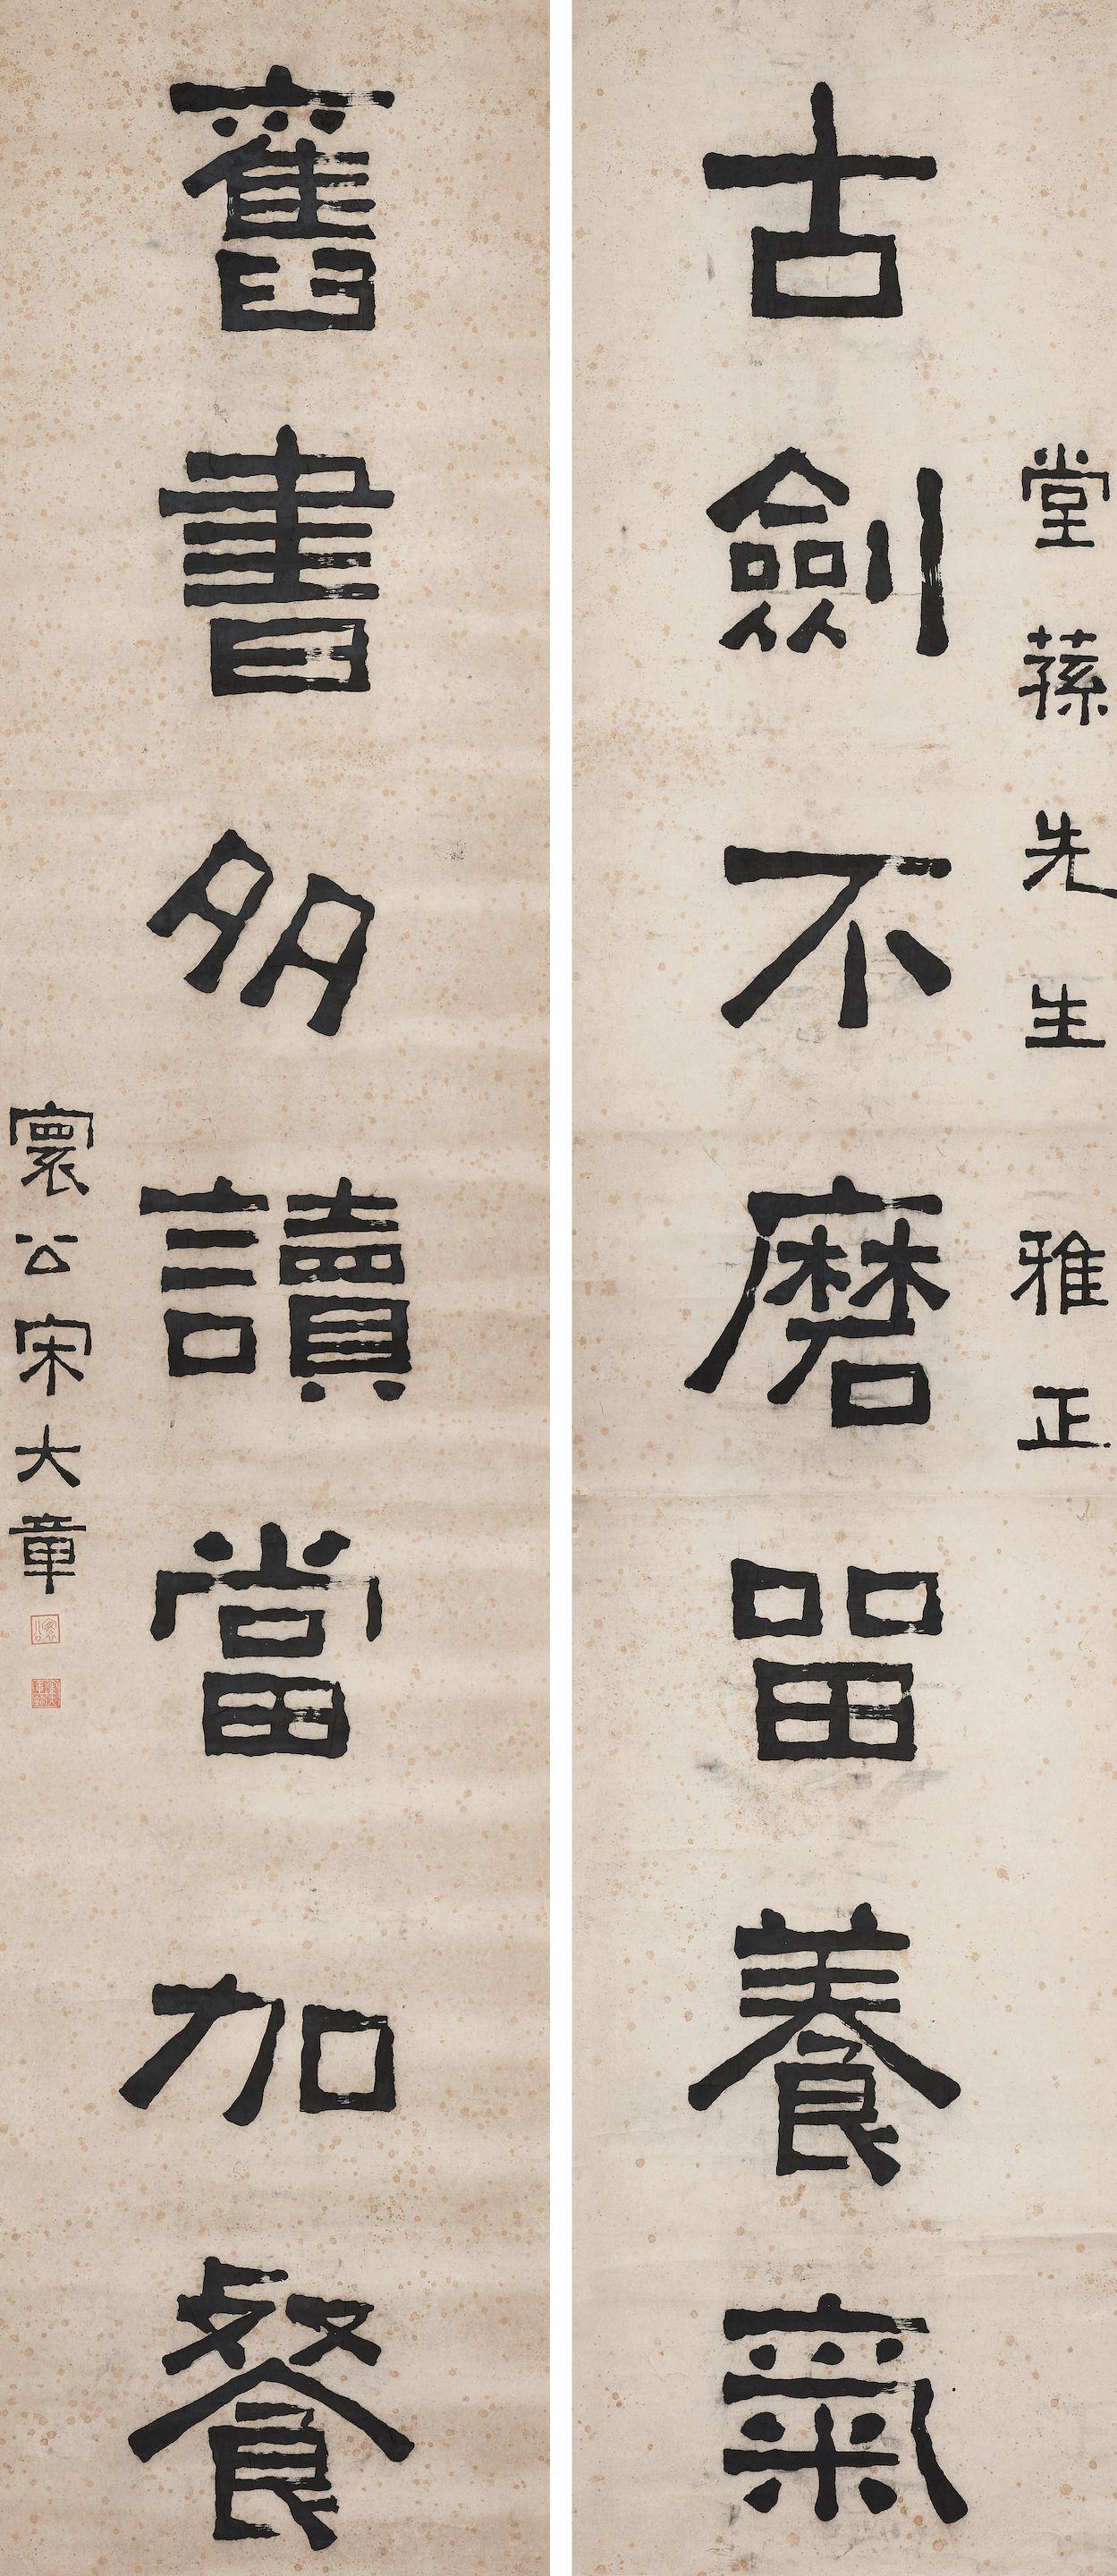 堂蓀先生雅正
古劍不磨畱養氣
舊書多讀當加餐
寰公宋大章